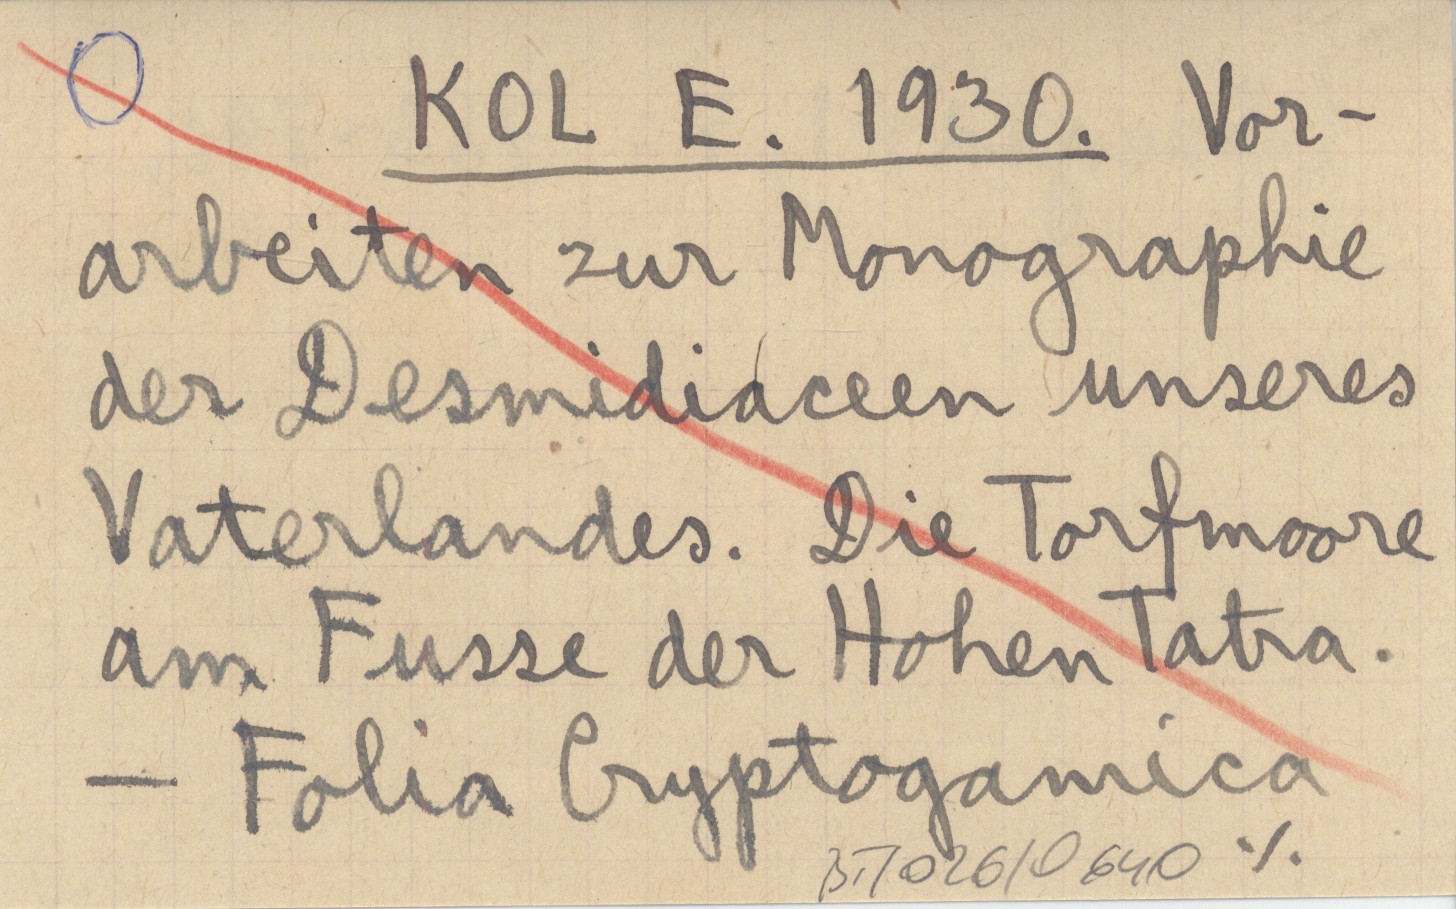 KOL E. 1930. Vor-
arbeiten zur Monographie
der Desmidiaceen unseres
Vaterlandes. Die Torfmoore
am Fusse der Hohen Tatra.
— Folia Cryptogamica
./.